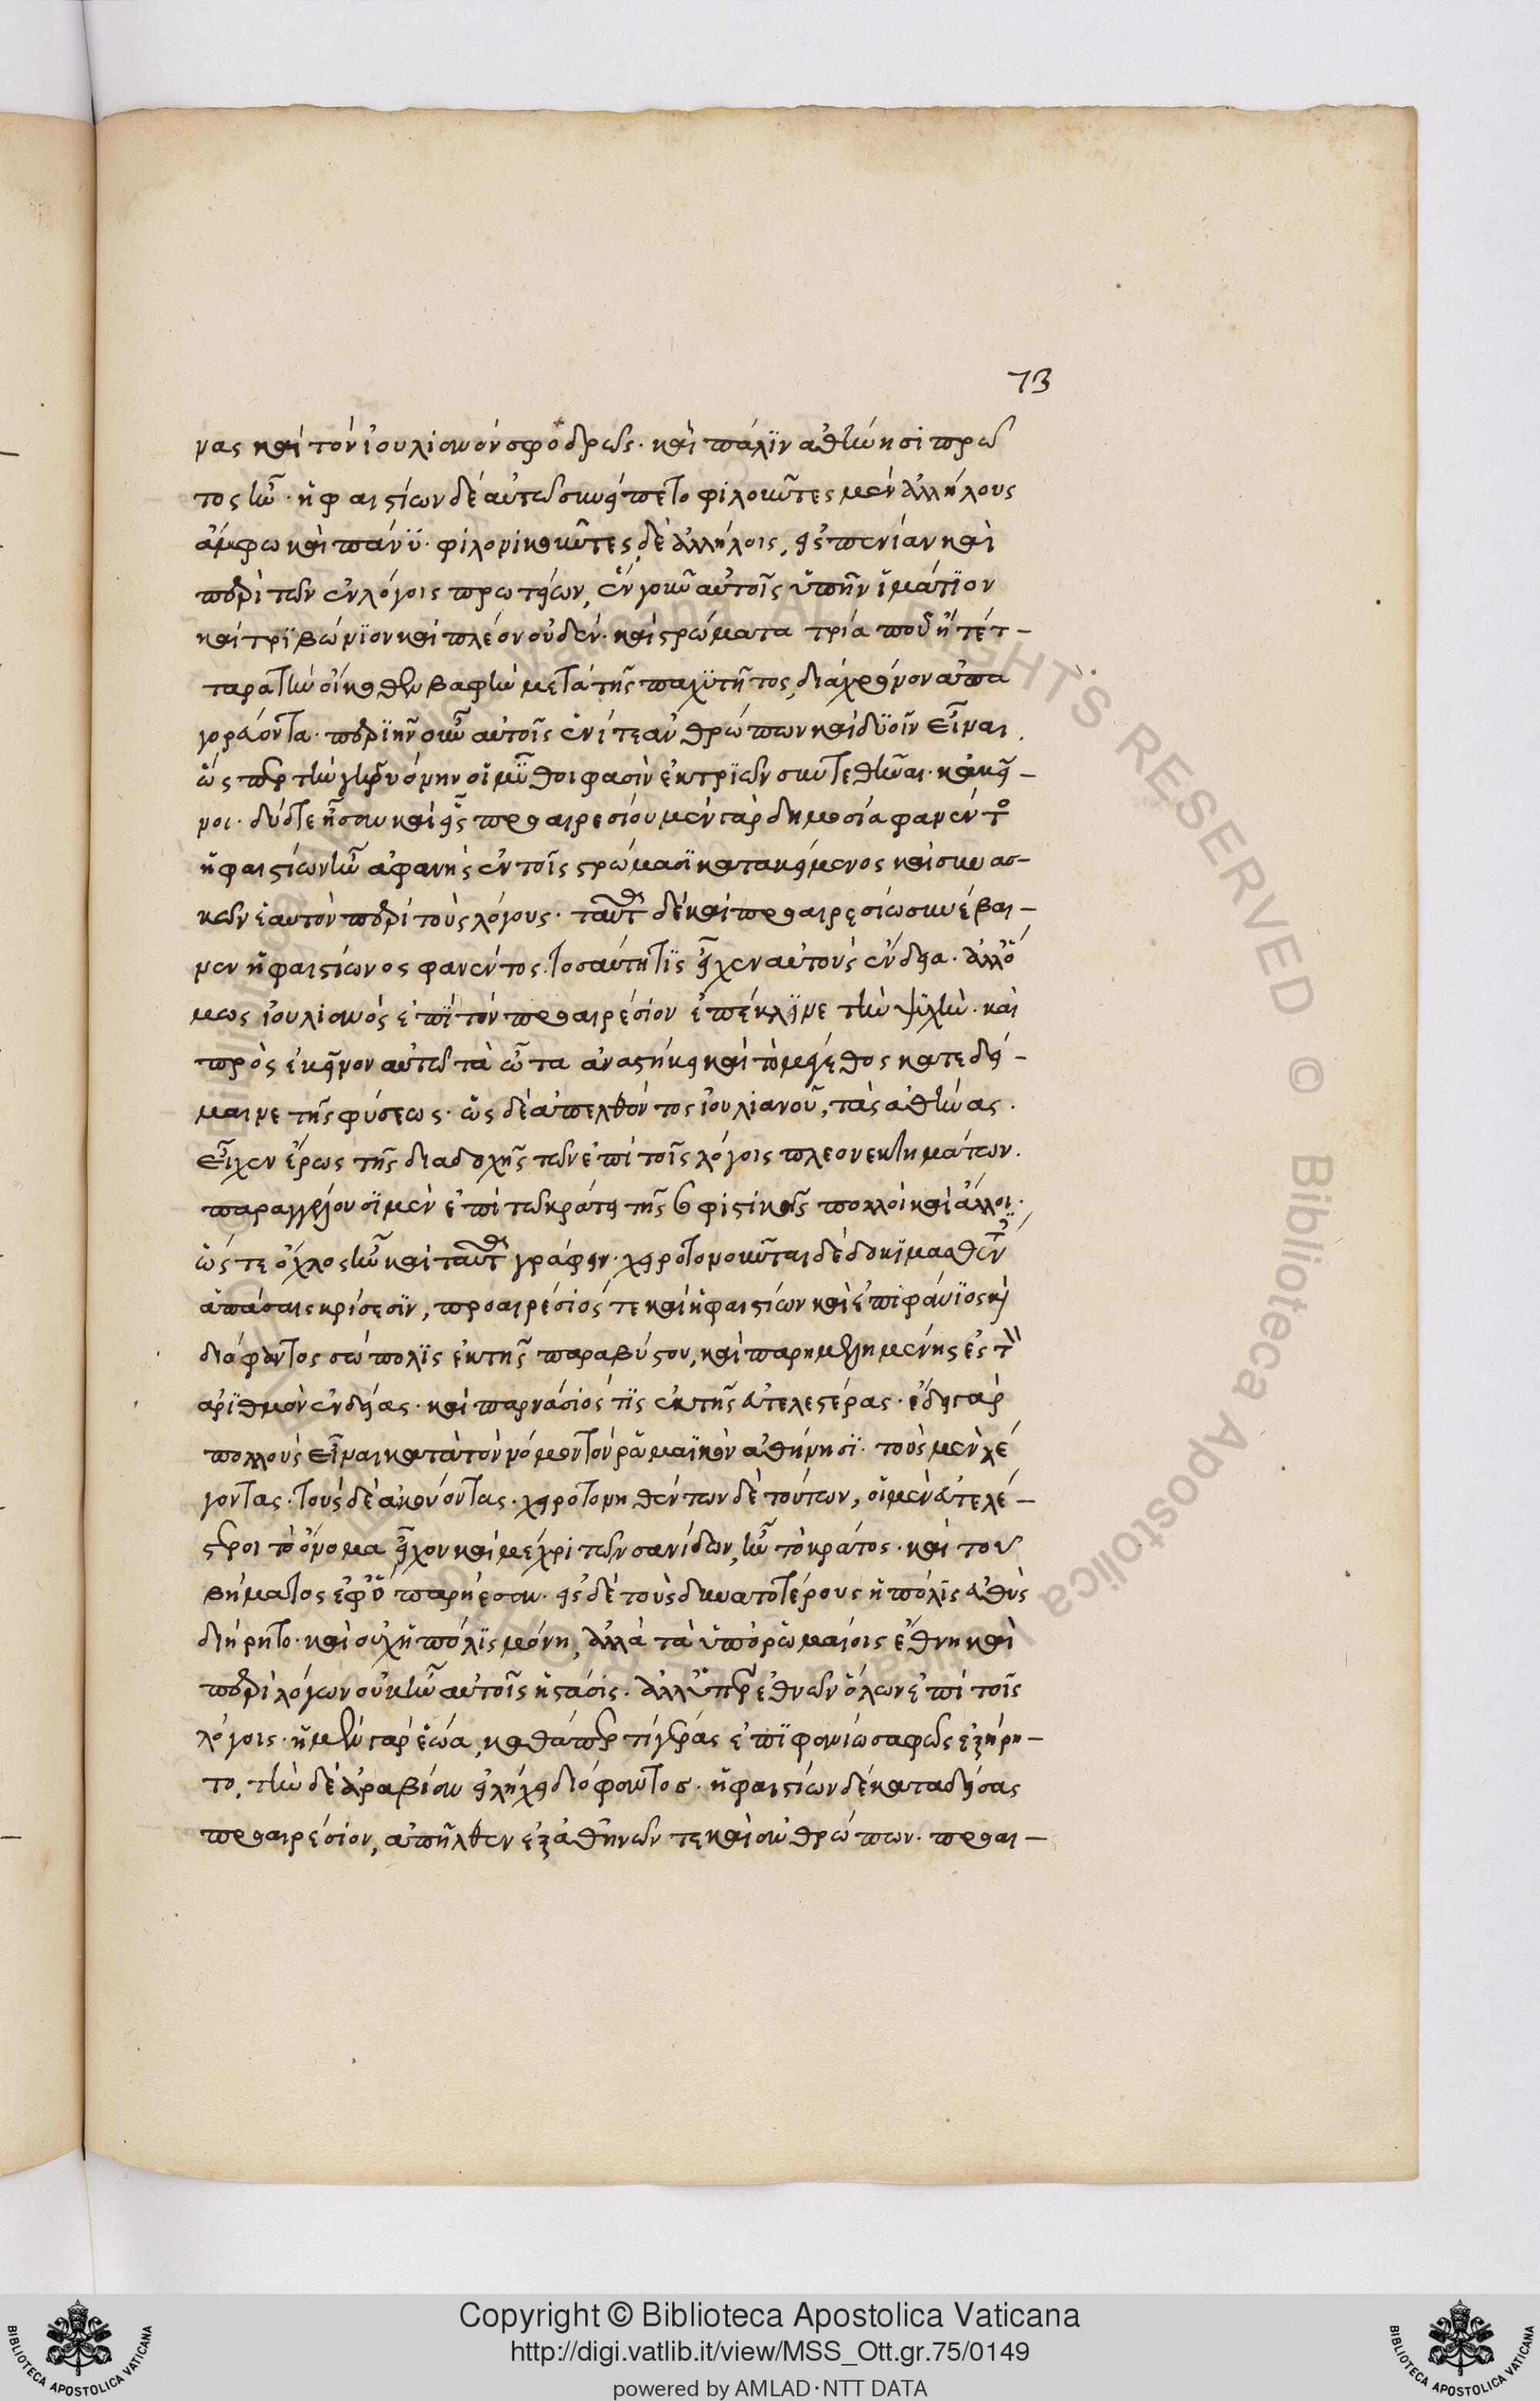 73
νας καὶ τὸν ἰουλιανὸν σφόδρως· καὶ πάλϊν ἀθήνησι πρῶ
τος ἦν· ἡφαιστίων δὲ αὐτῶ συνείπετο φιλοῦντες μὲν ἀλλήλους
ἄμφω καὶ πάνϋ· φιλονικοῦντες δὲ ἀλλήλοις, εἰς πενίαν καὶ
περὶ τῶν ἐν λόγοις πρωτείων, ἓν γοῦν αὐτοῖς ὑπῆν ἱμάτϊον
καὶ τρϊβώνϊον καὶ πλέον οὐδέν· καὶ στρώματα τρία που ἢ τέτ-
ταρα τὴν οἴκοθεν βαφὴν μετὰ τῆς παχϋτῆτος, διὰ χρόνον ἀπα
γορεύοντα· περιῆν οὖν αὐτοῖς ἑνί τε ἀνθρώπων καὶ δϋοῖν εἶναι.
ὥσπερ τὴν γηρυόνην οἱ μῦθοι φασὶν ἐκ τρϊῶν συντεθῆναι· κἀκεῖ-
νοι· δύο τε ἦσαν καὶ εἷς προαιρεσίου μὲν γὰρ δημοσία φανέντος
ἡφαιστίων ἦν ἀφανὴς ἐν τοῖς στρώμασϊ κατακείμενος καὶ συνασ-
κῶν ἑαυτὸν περὶ τοὺς λόγους· ταῦτα δὲ καὶ προαιρεσίω συνέβαι-
νεν ἡφαιστίωνος φανέντος. τοσαύτη τϊς εἶχεν αὐτοὺς ἔνδεια. ἀλλ' ὅ
μως ἰουλιανὸς ἐπὶ τὸν προαιρέσιον ἐπέκλϊνε τὴν ψϋχὴν· καὶ
πρὸς ἐκεῖνον αὐτῶ τὰ ὦτα ἀναστήκει καὶ τὸ μέγεθος κατεδεί-
μαινε τῆς φύσεως· ὡς δὲ ἀπελθόντος ἰουλιανοῦ, τὰς ἀθήνας.
εἶχεν ἔρως τῆς διαδοχῆς τῶν ἐπὶ τοῖς λόγοις πλεονεκτημάτων.
παραγγέλλουσϊ μὲν ἐπὶ τῶ κράτει τῆς σοφιστικῆς πολλοὶ καὶ ἄλλοι.
ὥστε ὄχλος ἦν καὶ ταῦτα γράφειν· χειροτονοῦνται δὲ δοκϊμασθέντες
ἁπάσαις κρίσεσϊν, προαιρέσιός τε καὶ ἡφαιστίων καὶ ἐπϊφάνϊος καὶ
διόφαντος σώπολϊς ἐκ τῆς παραβύστου, καὶ παρημελημένης ἐς τὸν
ἀρϊθμὸν ἐνδείας· καὶ παρνάσιός τϊς ἐκ τῆς εὐτελεστέρας· ἔδει γὰρ
πολλοὺς εἶναι κατὰ τὸν νόμον τὸν ῥωμαϊκὸν ἀθήνησϊ· τοὺς μὲν λέ
γοντας· τοὺς δὲ ἀκούοντας· χειροτονηθέντων δὲ τούτων, οἱ μὲν εὐτελέ-
στεροι τὸ ὄνομα εἶχον καὶ μέχρι τῶν σανίδων, ἦν τὸ κράτος· καὶ τοῦ
βήματος ἐφ' ὃ παρήεσαν· εἰς δὲ τοὺς δυνατοτέρους ἡ πόλϊς εὐθὺς
διήρητο· καὶ οὐχ ἡ πόλϊς μόνη, ἀλλὰ τὰ ὑπὸ ῥωμαίοις ἔθνη καὶ
περὶ λόγων οὐκ ἦν αὐτοῖς ἡ στάσις· ἀλλ' ὑπὲρ ἐθνῶν ὅλων ἐπὶ τοῖς
λόγοις· ἡ μὲν γὰρ ἑώα, καθάπερ τί γέρας ἐπϊφανίω σαφῶς ἐξήρη-
το, τὴν δὲ ἀραβίαν εἰλήχει διόφαντος· ἡφαιστίων δὲ καταδείσας
προαιρέσιον, ἀπῆλθεν ἐξ ἀθηνῶν τε καὶ ἀνθρώπων· προαι-
Copyright © Biblioteca Apostolica Vaticana
http://digi.vatlib.it/view/MSS_Ott.gr.75/0149
powered by AMLAD·NTT DATA